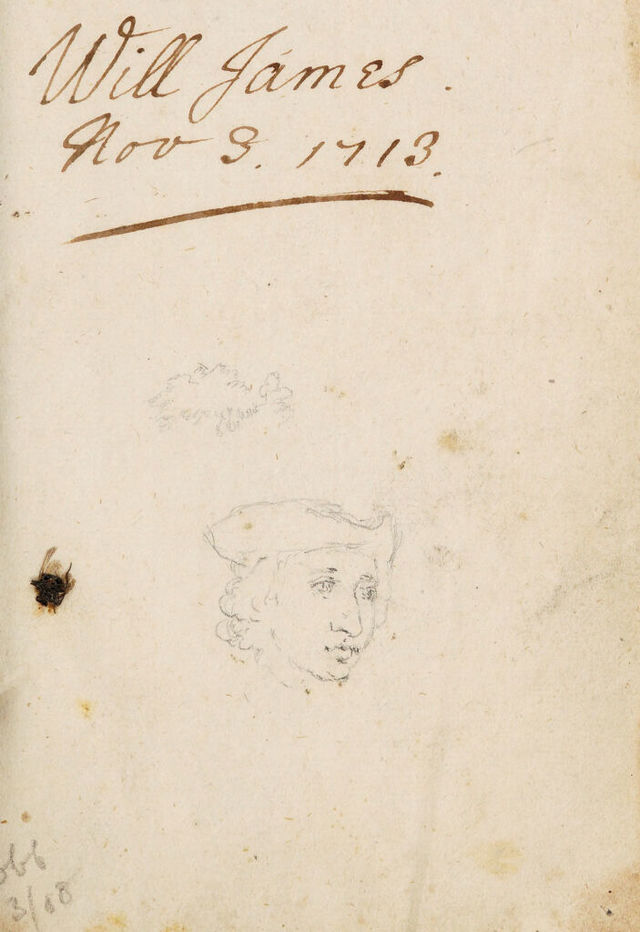 Will James.
Nov 3. 1713.
3/08